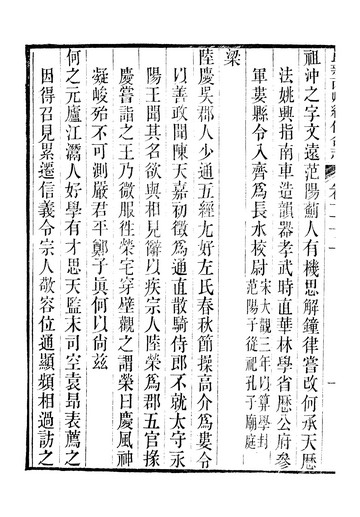 祖沖之字文遠范陽薊人有機思解鐘律嘗改何承天歷
法姚興指南車造韻器孝武時直華林學省歷公府參
軍婁縣令入齊爲長水校尉宋大觀三年以算學封
范陽子從祀孔子廟庭
梁
陸慶吳郡人少通五經尤好左氏春秋節操高介爲婁令
以善政聞陳天嘉初徵爲通直散騎侍郎不就太守永
陽王聞其名欲與相見辭以疾宗人陸榮爲郡五官掾
慶嘗詣之王乃微服往榮宅穿壁觀之謂榮曰慶風神
凝峻殆不可測嚴君平鄭子眞何以尙茲
何之元廬江灊人好學有才思天監末司空袁昂表薦之
因得召見累遷信義令宗人敬容位通顯頻相過訪之